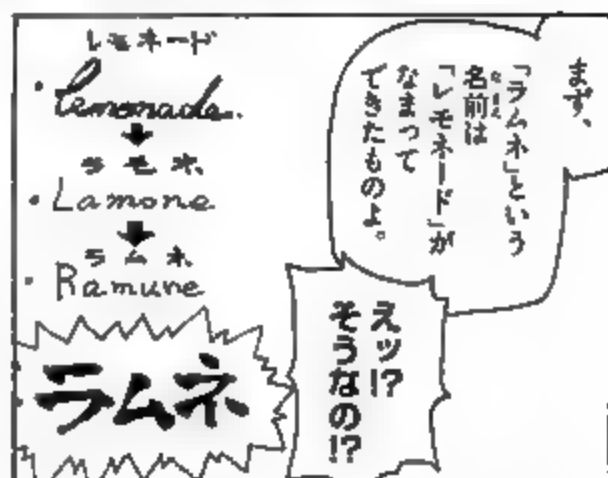 まず、
「ラムネ」という
名前は
「レモネード」が
なまって
できたものよ。
えッ!?
そうなの!?
レモネード
Lemonade.
ラモネ
Lamone
ラムネ
Ramune
ラムネ